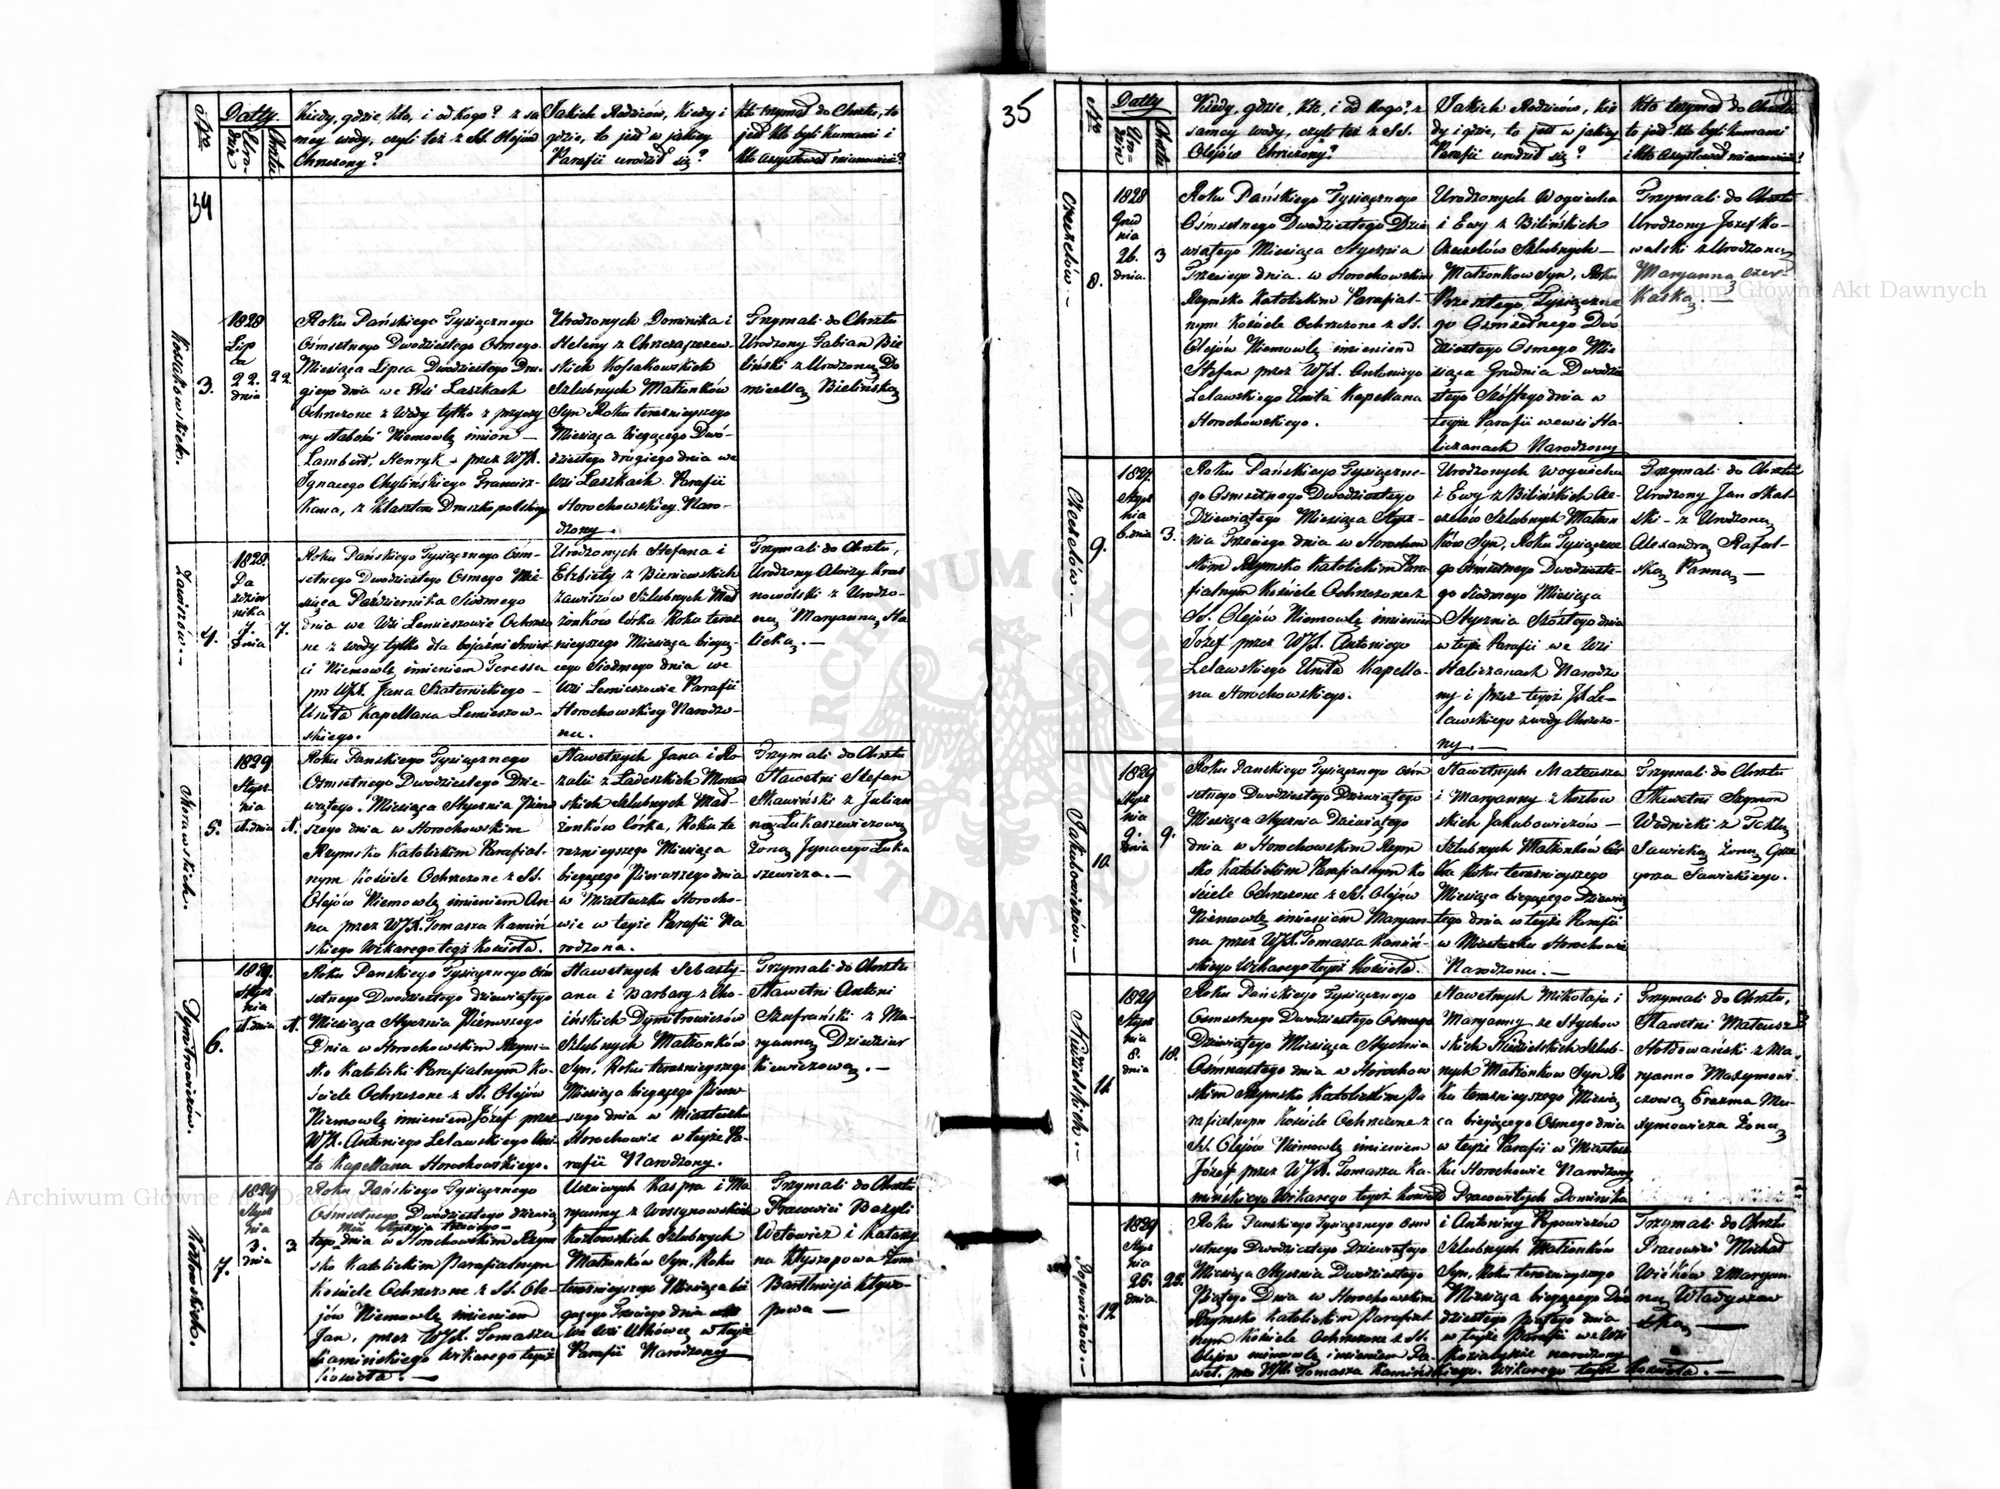 Nro
Datty
Uro-
dzin
Chrztu
Kiedy, gdzie, kto, i od kogo? z sa
mey wody, czyli też z SS. Olejów
Chrzczony?
Jakich Rodziców, kiedy i
gdzie, to jest w jakiey
Parafii urodził się?
kto trzymał do Chrztu, to
jest kto byli kumami i
kto assystował mianowicie?
34
Kossakowskich.
3.
1828
Lip
ca
22.
dnia
22.
Roku Pańskiego Tysiącznego
Ośmsetnego Dwudziestego Ośmego
Miesiąca Lipca Dwudziestego Dru
giego dnia we Wsi Laszkach
Ochrzczone z Wody tylko z przyczy
ny słabości Niemowlę imion —
Lambert, Henryk, przez WJX.
Ignacego Chylińskiego Francisz-
kana, z Klasztoru Druszkopolskiego
Urodzonych Dominika i
Heleny z Chrząszczew-
skich Kossakowskich
Szlubnych Małżonków
Syn Roku teraznieyszego
Miesiąca biegącego Dwó-
dziestego drugiego dnia we
Wsi Laszkach Parafii
Horochowskiey Naro-
dzony.
Trzymali do Chrztu
Urodzony Fabian Bie
liński z Urodzoną Do
micellą Bielińską
Zawiszów.—
4.
1828.
Pa
ździer
nika
7.
dnia
7.
Roku Pańskiego Tysiącznego Ośm-
setnego Dwudziestego Ośmego Mie
siąca Października Siódmego
dnia we Wsi Lemieszowie Ochrzczo
ne z wody tylko dla bojaźni śmier
ci Niemowlę imieniem Teressa
pr WJX. Jana Szaternickiego —
Unita Kapellana Lemieszow-
skiego.
Urodzonych Stefana i
Elżbiety z Bieniewskich
Zawiszów Szlubnych Mał
żonków Córka Roku teraz
nieyszego Miesiąca biegą
cego Siódmego dnia we
Wsi Lemieszowie Parafii
Horochowskiey Narodzo-
na.
Trzymali do Chrztu,
Urodzony Aloizy Kras
nowolski z Urodzo-
ną Maryanną Ha
licką.—
Morawskich.
5.
1829
Stycz
nia
1. dnia
1.
Roku Pańskiego Tysiącznego
Ośmsetnego Dwudziestego Dzie-
wiątego. Miesiąca Stycznia Pierw
szego dnia w Horochowskim
Rzymsko Katolickim Parafial-
nym Kościele Ochrzczone z SS.
Olejów Niemowlę imieniem An-
na przez WJX. Tomasza Kamiń
skiego Wikarego tegż Kościoła.
Sławetnych Jana i Ro
zalii z Ładeszkich Moraw
skich Szlubnych Mał-
żonków Córka, Roku te
raznieyszego Miesiąca
biegącego Pierwszego dnia
w Miasteczku Horocho-
wie w teyże Parafii Na
rodzona.
Trzymali do Chrztu
Sławetni Stefan
Sławiński z Julian
ną Łukaszewiczową
żoną Ignacego Łuka
szewicza.—
Dymitrowiczów.
6.
1829.
Stycz
nia
1. dnia
1.
Roku Pańskiego Tysiącznego Ośm
setnego Dwudziestego dziewiątego
Miesiąca Stycznia Pierwszego
Dnia w Horochowskim Rzym-
sko Katolicki Parafialnym Ko-
ściele Ochrzczone z SS. Olejów
Niemowlę imieniem Józef przez
WJX. Antoniego Lelawskiego Uni
ta Kapellana Horochowskiego.
Sławetnych Sebasty-
ana i Barbary z Cho-
ińskich Dymitrowiczów
Szlubnych Małżonków
Syn, Roku teraznieyszego
Miesiąca biegącego Pierw
szego dnia w Miasteczku
Horochowie w teyże Pa-
rafii Narodzony.
Trzymali do Chrztu
Sławetni Antoni
Szufrański z Ma-
ryanną Dziedziur
kiewiczową.—
Kozłowskich.
7.
1829
Stycz
nia
3.
dnia
3
Roku Pańskiego Tysiącznego
Ośmsetnego Dwudziestego dziewią
Mca Stycznia trzeciego
tego dnia w Horochowskim Rzym
sko Katolickim Parafialnym
Kościele Ochrzczone z SS. Ole-
jów Niemowlę imieniem
Jan, przez WJX. Tomasza
Kamińskiego Wikarego tegoż
Kościoła.—
Uczciwych Kaspra i Ma
ryanny z Woszynowskich
Kozłowskich Szlubnych
Małżonków Syn, Roku
teraznieyszego Miesiąca bie
gącego Trzeciego dnia
we Wsi Uhrówce w teyże
Parafii Narodzony
Trzymali do Chrztu
Pracowici Bazyli
Wetowicz i Katarzy
na Kłyszopowa żona
Bartłomieja Kłyszo
powa —
35
Nro
Datty
Uro-
dzin
Chrztu
Kiedy, gdzie, kto, i od kogo? z
samey wody, czyli też z SS.
Olejów Chrzczony?
Jakich Rodziców, kie
dy i gdzie, to jest w jakiey
Parafii urodził się?
Kto trzymał do Chrztu
to jest kto byli kumami
i kto Assystował mianowicie?
Czeczelów.—
8.
1828
Grud
nia
26.
dnia.
3
Roku Pańskiego Tysiącznego
Ośmsetnego Dwudziestego Dzie
wiątego Miesiąca Stycznia
Trzeciego dnia. w Horochowskim
Rzymsko Katolickim Parafial-
nym Kościele Ochrzczone z SS.
Olejów Niemowlę imieniem
Stefan przez WJX. Antoniego
Lelawskiego Unita Kapellana
Horochowskiego.
Urodzonych Woyciecha
i Ewy z Bilińskich
Czeczelów Szlubnych —
Małżonków Syn, Roku
Przeszłego Tysiączne
go Ośmsetnego Dwó
dziestego Ósmego Mie
siąca Grudnia Dwudzie
stego Szóstego dnia w
teyże Parafii we wsi Ha
liczanach Narodzony
Trzymali do Chrztu
Urodzony Józef Ko-
walski z Urodzoną
Maryanną Czer-
kaską.—
Czeczelów.—
9.
1827.
Stycz
nia
6. dnia
3.
Roku Pańskiego Tysiączne-
go Ośmsetnego Dwudziestego
Dziewiątego Miesiąca Stycz-
nia Trzeciego dnia w Horochow
skim Rzymsko Katolickim Para
fialnym Kościele Ochrzczone z
SS. Olejów Niemowlę imieniem
Józef przez WJX. Antoniego
Lelawskiego Unita Kapella-
na Horochowskiego.
Urodzonych Woyciecha
i Ewy z Bilińskich Cze-
czelów Szlubnych Małżon
ków Syn, Roku Tysiączne
go Ośmsetnego Dwudzieste-
go Siódmego Miesiąca
Stycznia Szóstego dnia
w teyże Parafii we Wsi
Haliczanach Narodzo
ny i przez tegoż JX. Le-
lawskiego z wody Chrzczo-
ny.—
Trzymali do Chrztu
Urodzony Jan Skal-
ski — z Urodzoną
Alexandrą Rafal-
ską Panną —
Jakubowiczów.—
10.
1829
Stycz
nia
9.
dnia
9.
Roku Pańskiego Tysiącznego Ośm
setnego Dwudziestego Dziewiątego
Miesiąca Stycznia Dziewiątego
dnia w Horochowskim Rzym
sko Katolickim Parafialnym Ko
ściele Ochrzczone z SS. Olejów
Niemowlę imieniem Maryan-
na przez WJX. Tomasza Kamiń-
skiego Wikarego tegoż Kościoła.
Sławetnych Mateusza
i Maryanny z Kozłow
skich Jakubowiczów —
Szlubnych Małżonków Cór
ka Roku teraznieyszego
Miesiąca biegącego Dziewią
tego dnia w teyże Parafii
w Miasteczku Horochowie
Narodzona.—
Trzymali do Chrztu
Sławetni Szymon
Wodnicki z Teklą
Sawicką żoną Grze
gorza Sawickiego.
Niedzielskich.—
11.
1829
Stycz
nia
8.
dnia
18.
Roku Pańskiego Tysiącznego
Ośmsetnego Dwudziestego Ośmego
Dziewiątego Miesiąca Stycznia
Ośmnastego dnia w Horochow
skim Rzymsko Katolickim Pa
rafialnym Kościele Ochrzczone z
SS. Olejów Niemowlę imieniem
Józef przez WJX. Tomasza Ka-
mińskiego Wikarego tegoż Kościoła
Sławetnych Mikołaja i
Maryanny ze Stychow
skich Niedzielskich Szlub-
nych Małżonków Syn Ro
ku teraznieyszego Miesią
ca biegącego Ósmego dnia
w teyże Parafii w Miastecz
ku Horochowie Narodzony
Trzymali do Chrztu,
Sławetni Mateusz
Hołdowański z Ma-
ryanną Maxymowi
czową Erazma Ma-
xymowicza żoną
Popowiczów.—
12.
1829
Stycz
nia
25.
dnia.
25.
Roku Pańskiego Tysiącznego Ośm
setnego Dwudziestego Dziewiątego
Miesiąca Stycznia Dwudziestego
Piątego Dnia w Horochowskim
Rzymsko Katolickim Parafial
nym Kościele Ochrzczone z SS.
Olejów niemowlę imieniem Pa-
weł. przez WJX. Tomasza Kamińskiego. Wikarego tegoż Kościoła.—
Pracowitych Dominika
i Antoniny Popowiczów
Szlubnych Małżonków
Syn, Roku teraznieyszego
Miesiąca biegącego Dwó
dziestego piątego dnia
w teyże parafii we Wsi
narodzony
Trzymali do Chrztu
Pracowici Michał
z Maryan-
ną Władyszew
ską —
Archiwum Główne Akt Dawnych
Archiwum Główne Akt Dawnych
ARCHIWUM GŁÓWNE AKT DAWNYCH